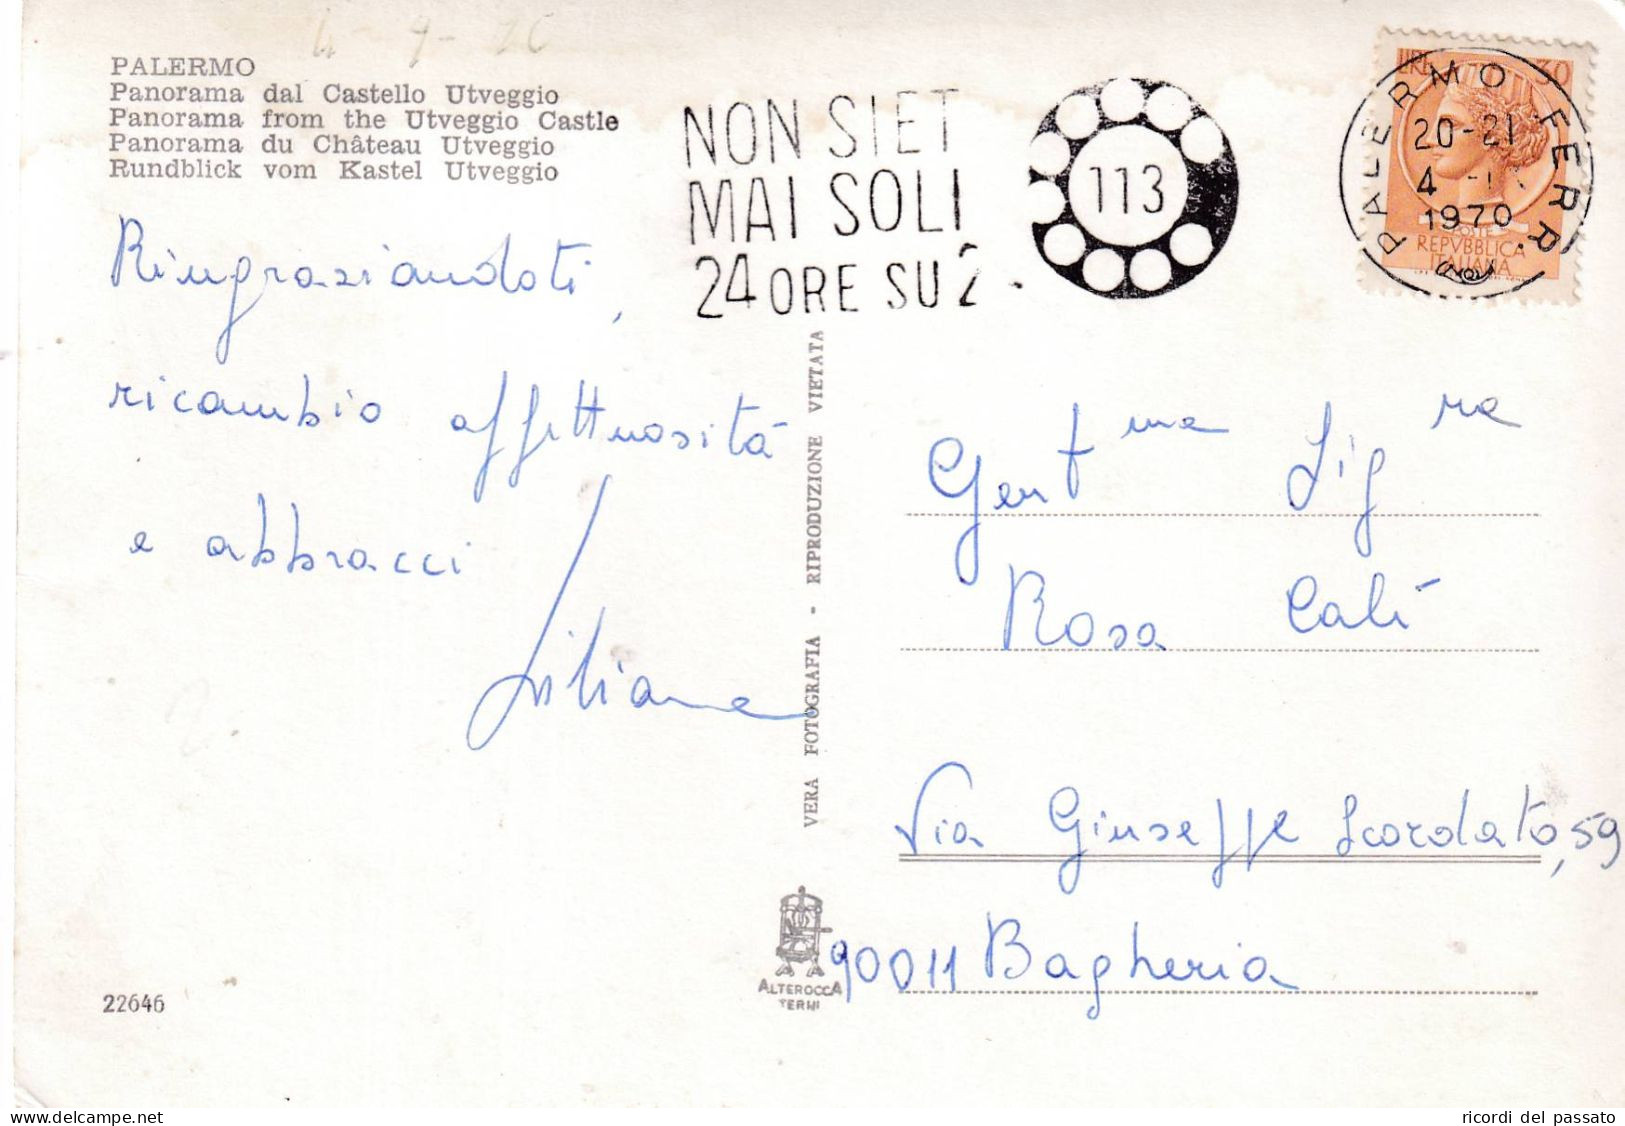 4-9-70
PALERMO
Panorama dal Castello Utveggio
Panorama from the Utveggio Castle
Panorama du Château Utveggio
Rundblick vom Kastel Utveggio
NON SIET
MAI SOLI
24 ORE SU 2
113
PALERMO FERR.
20-21
4
1970
LIRE 30
POSTE
REPVBBLICA
ITALIANA
Ringraziandoti,
ricambio affettuosità
e abbracci
Liliana
VERA FOTOGRAFIA - RIPRODUZIONE VIETATA
Gent ma Sig ra
Rosa Calì
Via Giuseppe Scordato, 59
90011 Bagheria
ALTEROCCA
TERNI
22646
delcampe.net
ricordi del passato